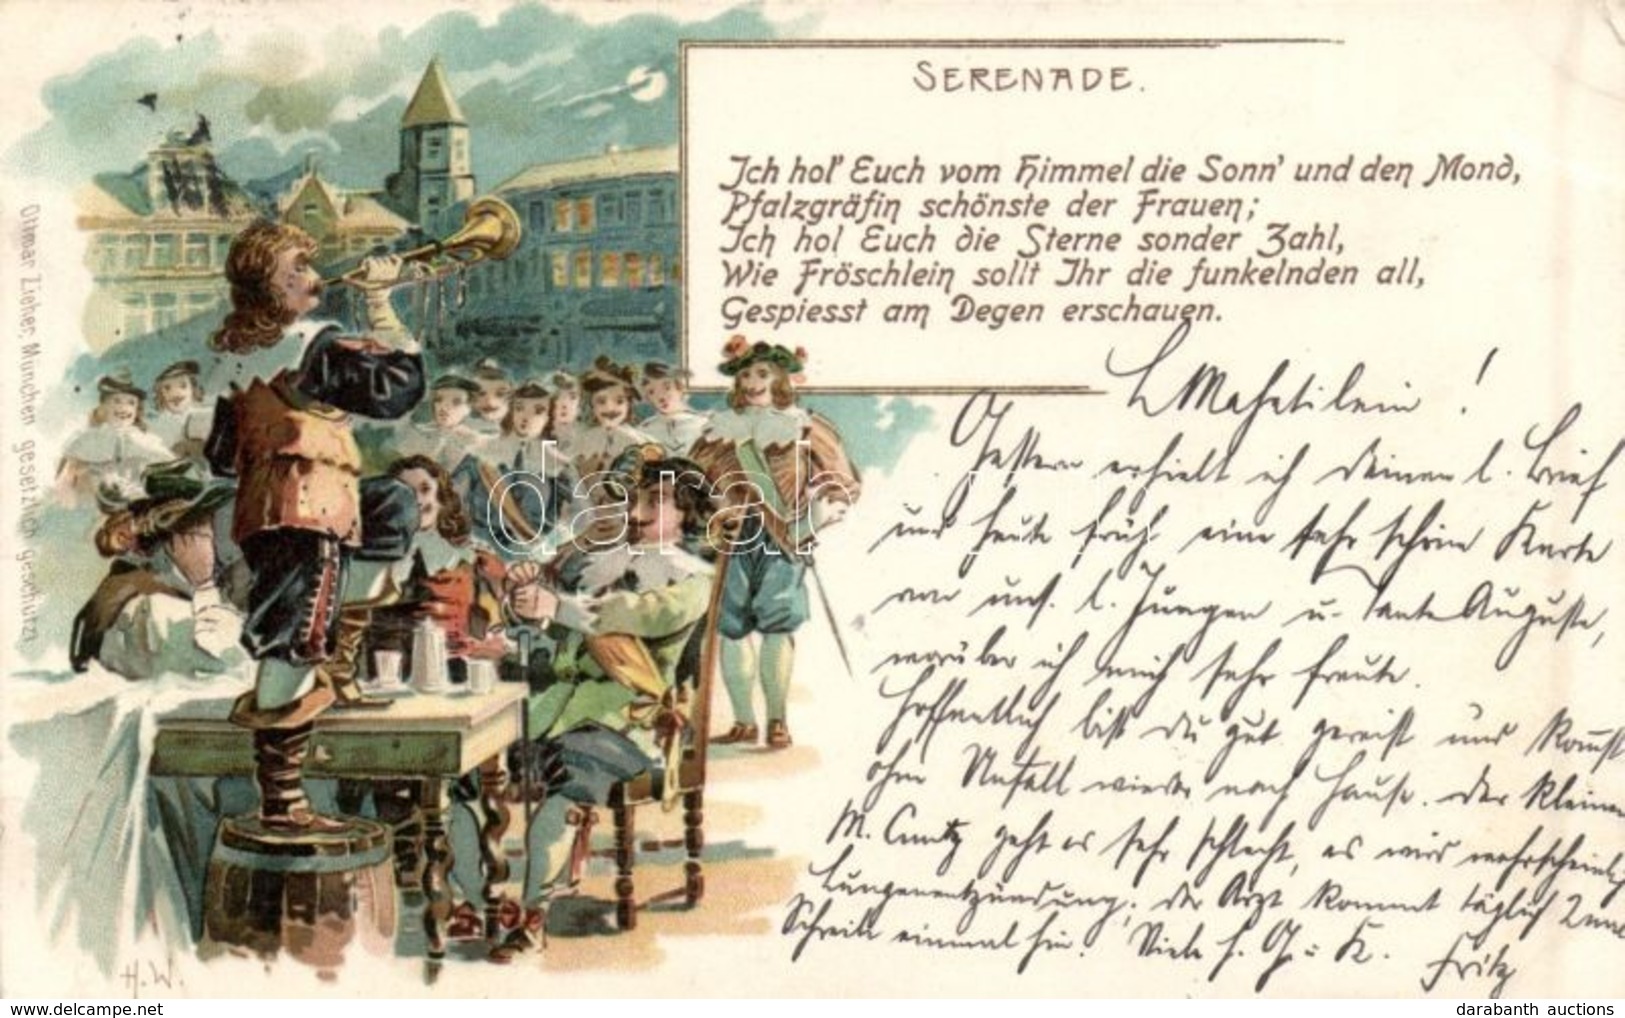 SERENADE.
Ich hol' Euch vom Himmel die Sonn' und den Mond,
Pfalzgräfin schönste der Frauen;
Ich hol Euch die Sterne sonder Zahl,
Wie Fröschlein sollt Ihr die funkelnden all,
Gespiesst am Degen erschauen.
L Mahstilein !
Gestern erhielt ich Deinen l. Brief
und heute früh eine sehr schöne Karte
von uns. l. Jungen u. Tante Auguste,
worüber ich mich sehr freute.
Hoffentlich bist Du gut gereist und kommst
ohne Unfall wieder nach Hause. Der kleinen
M. Cuntz geht es sehr schlecht, es wird wahrscheinlich
Lungenentzündung, der Arzt kommt täglich 2mal
Schreibe einmal hin. Viele h. G. u. K. Fritz
Ottmar Zieher, München gesetzlich geschützt
H.W.
darabanth
darabanth auctions